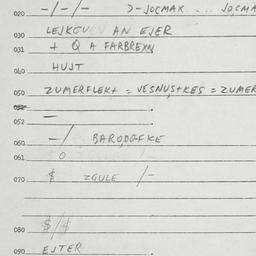 020 -/-/- >-JOCMAK ... JOCMA
030 LEJKGUL AN EJER
031 + Q A FARBREXN
040 HUJT
050 ZUMERFLEKT = VESNUSTKES = ZUMER
052
052 —
060 -/ BARODGFKE
061 O
070 $ ZGULE /-
080 $/$
090 EJTER